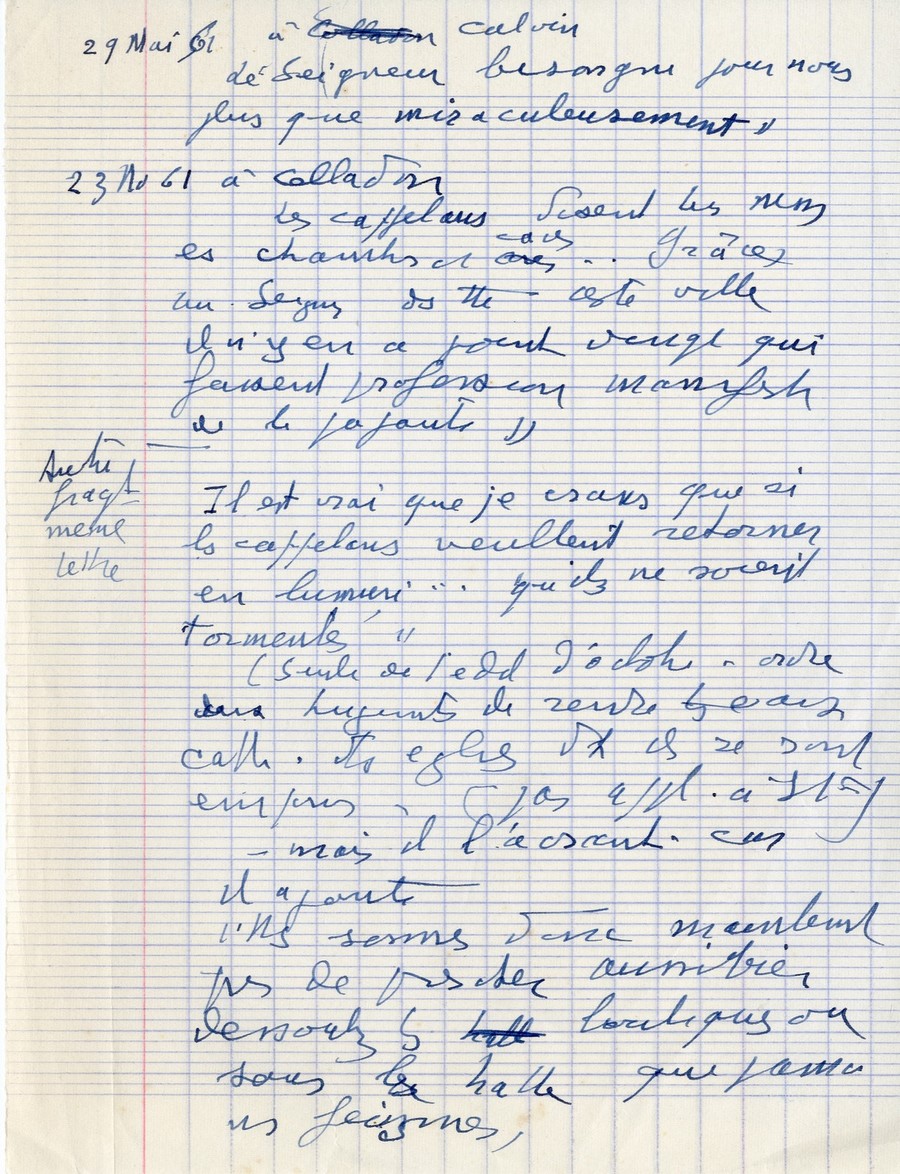 29 Mai 61 à Calvin
Seigneur besongne pour nous
plus que miraculeusement »
23 No 61 à Colladon
Les cappelans disent les
es chambres et caves ... Grâces
au Seignr cste ville
il n'y en a point vingt qui
fassent profession manifeste
de la papauté »
Autre
fragt
meme
lettre
Il est vrai que je crains que si
ls cappelans veullent retorner
en lumiere ... qu'ilz ne soient
tormentés "
(Suite de l'edit d'octobre - ordre
huguenots de rendre aux
cath. ls eglises dt ils se sont
emparés
- mais il car
il ajoute
sommes maintenant
pres de prescher aussi bien
dessoubz ls boutiques ou
sous la halle que jama
is feismes,